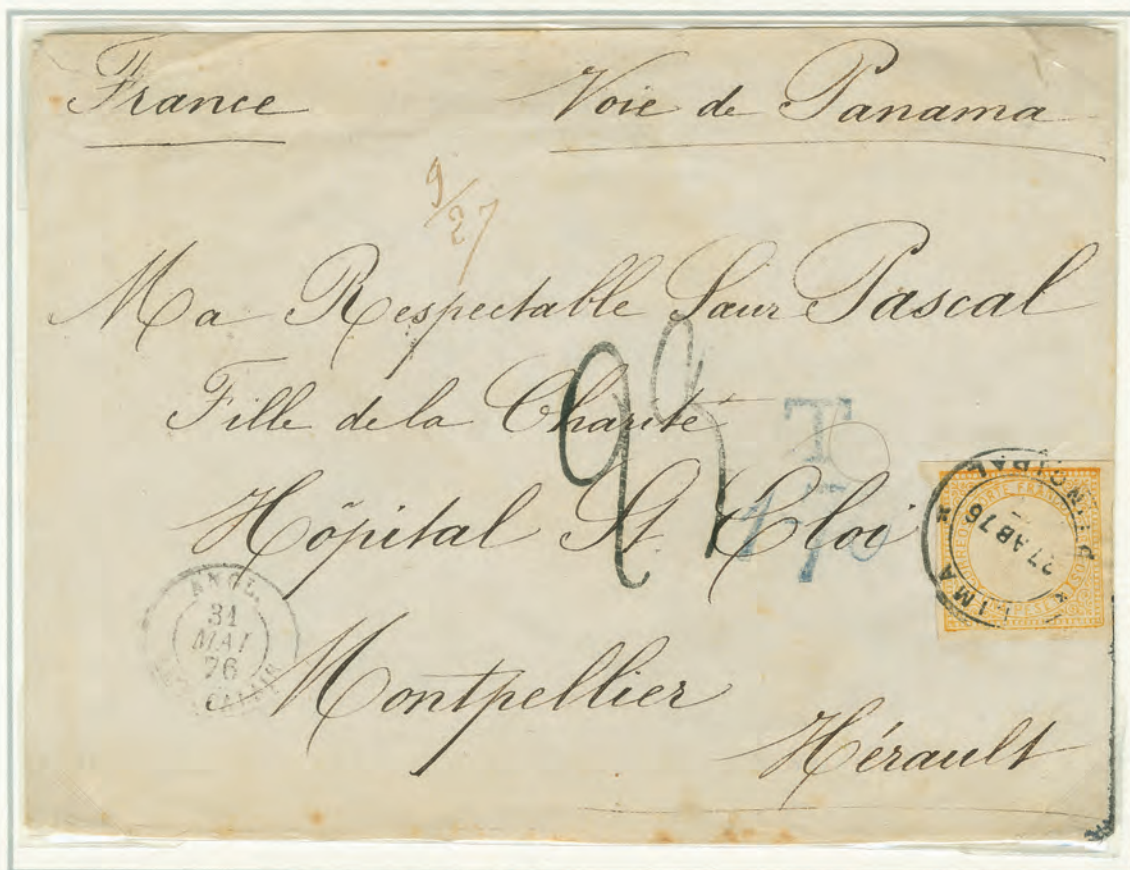 France Voie de Panama
9/27
Ma Respectable Sœur Pascal
Fille de la Charité
Hôpital St Eloi
Montpellier
Hérault
T
ANGL.
31
MAI
76
CALAIS
LIMA
PRINCIPAL
27 AB 76
PORTE FRANCO